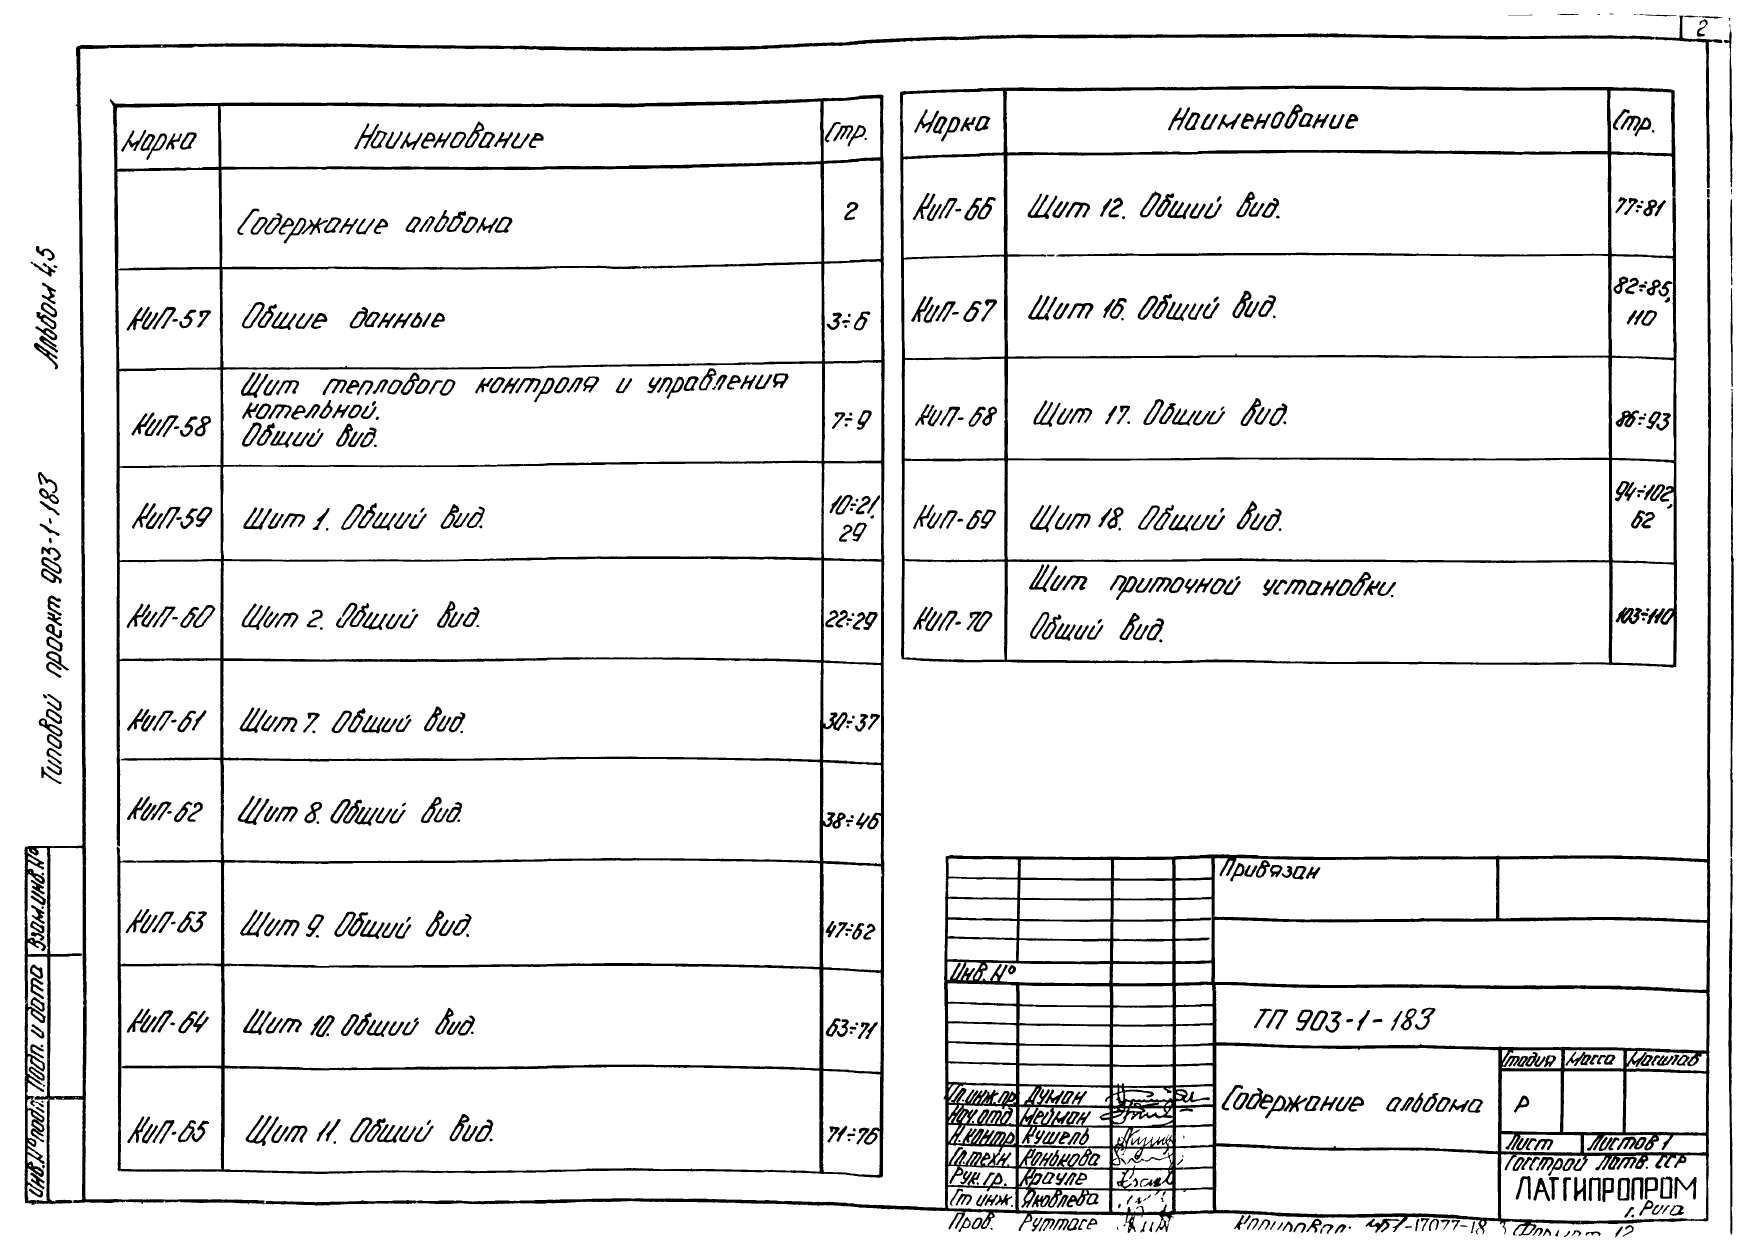 2
Альбом 4.5
Типовой проект 903-1-183
Взам.инв.№
Подп. и дата
Инв.№подл.
Марка Наименование Стр.
Содержание альбома 2
КиП-57 Общие данные 3÷6
КиП-58 Щит теплового контроля и управления
котельной.
Общий вид. 7÷9
КиП-59 Щит 1. Общий вид. 10÷21,
29
КиП-60 Щит 2. Общий вид. 22÷29
КиП-61 Щит 7. Общий вид. 30÷37
КиП-62 Щит 8. Общий вид. 38÷46
КиП-63 Щит 9. Общий вид. 47÷62
КиП-64 Щит 10. Общий вид. 63÷71
КиП-65 Щит 11. Общий вид. 71÷76
Марка Наименование Стр.
КиП-66 Щит 12. Общий вид. 77÷81
КиП-67 Щит 16. Общий вид. 82÷85,
110
КиП-68 Щит 17. Общий вид. 86÷93
КиП-69 Щит 18. Общий вид. 94÷102,
62
КиП-70 Щит приточной установки.
Общий вид. 103÷110
Привязан
Инв.№
ТП 903-1-183
Содержание альбома
Стадия Масса Масштаб
Р
Лист Листов 1
Госстрой Латв. ССР
ЛАТГИПРОПРОМ
г. Рига
Гл.инж.пр. Думан
Нач.отд. Мейман
Н.контр. Кушель
Гл.техн. Конькова
Рук.гр. Крауле
Ст инж. Яковлева
Пров. Руттасе
Копировал: 17077-18 3 Формат 12